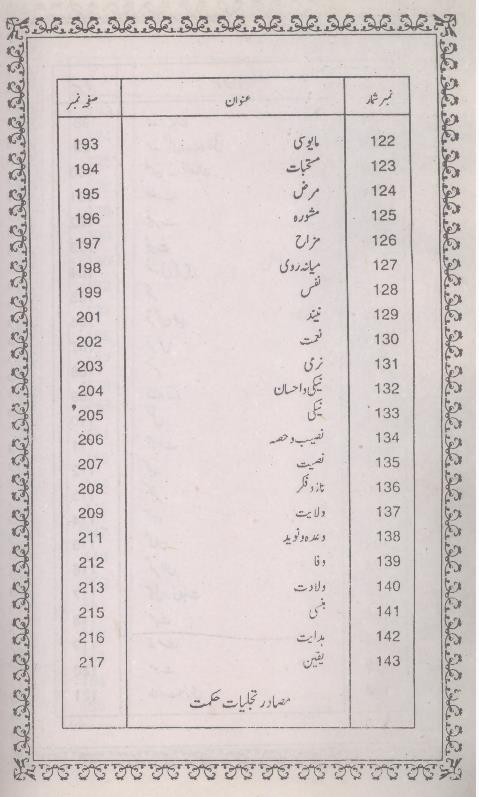 نمبر شمار عنوان صفحہ نمبر
122 مایوسی 193
123 مستحبات 194
124 مرض 195
125 مشورہ 196
126 مزاح 197
127 میانہ روی 198
128 نفس 199
129 نیند 201
130 نعمت 202
131 نرمی 203
132 نیکی و احسان 204
133 نیکی 205
134 نصیب و حصہ 206
135 نصیحت 207
136 ناز و فکر 208
137 ولایت 209
138 وعدہ و نوید 211
139 وفا 212
140 ولادت 213
141 ہنسی 215
142 ہدایت 216
143 یقین 217
مصادر تجلیات حکمت